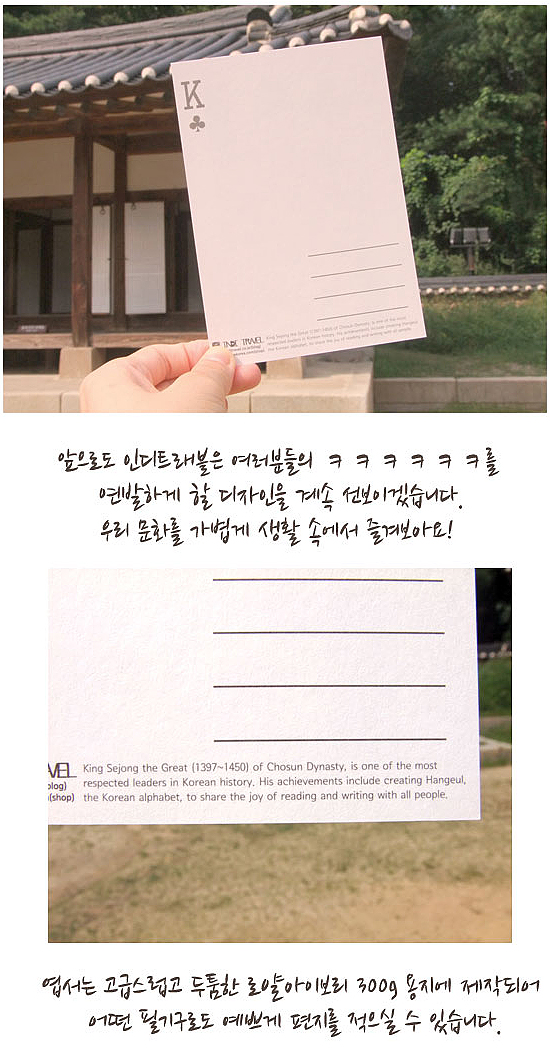 K
INDE TRAVEL
King Sejong the Great (1397~1450) of Chosun Dynasty, is one of the most
respected leaders in Korean history. His achievements include creating Hangeul,
the Korean alphabet, to share the joy of reading and writing with all people.
앞으로도 인디트래블은 여러분들의 ㅋ ㅋ ㅋ ㅋ ㅋ ㅋ를
연발하게 할 디자인을 계속 선보이겠습니다.
우리 문화를 가볍게 생활 속에서 즐겨보아요!
VEL King Sejong the Great (1397~1450) of Chosun Dynasty, is one of the most
olog) respected leaders in Korean history. His achievements include creating Hangeul,
(shop) the Korean alphabet, to share the joy of reading and writing with all people.
엽서는 고급스럽고 두툼한 로얄아이보리 300g 용지에 제작되어
어떤 필기구로도 예쁘게 편지를 적으실 수 있습니다.